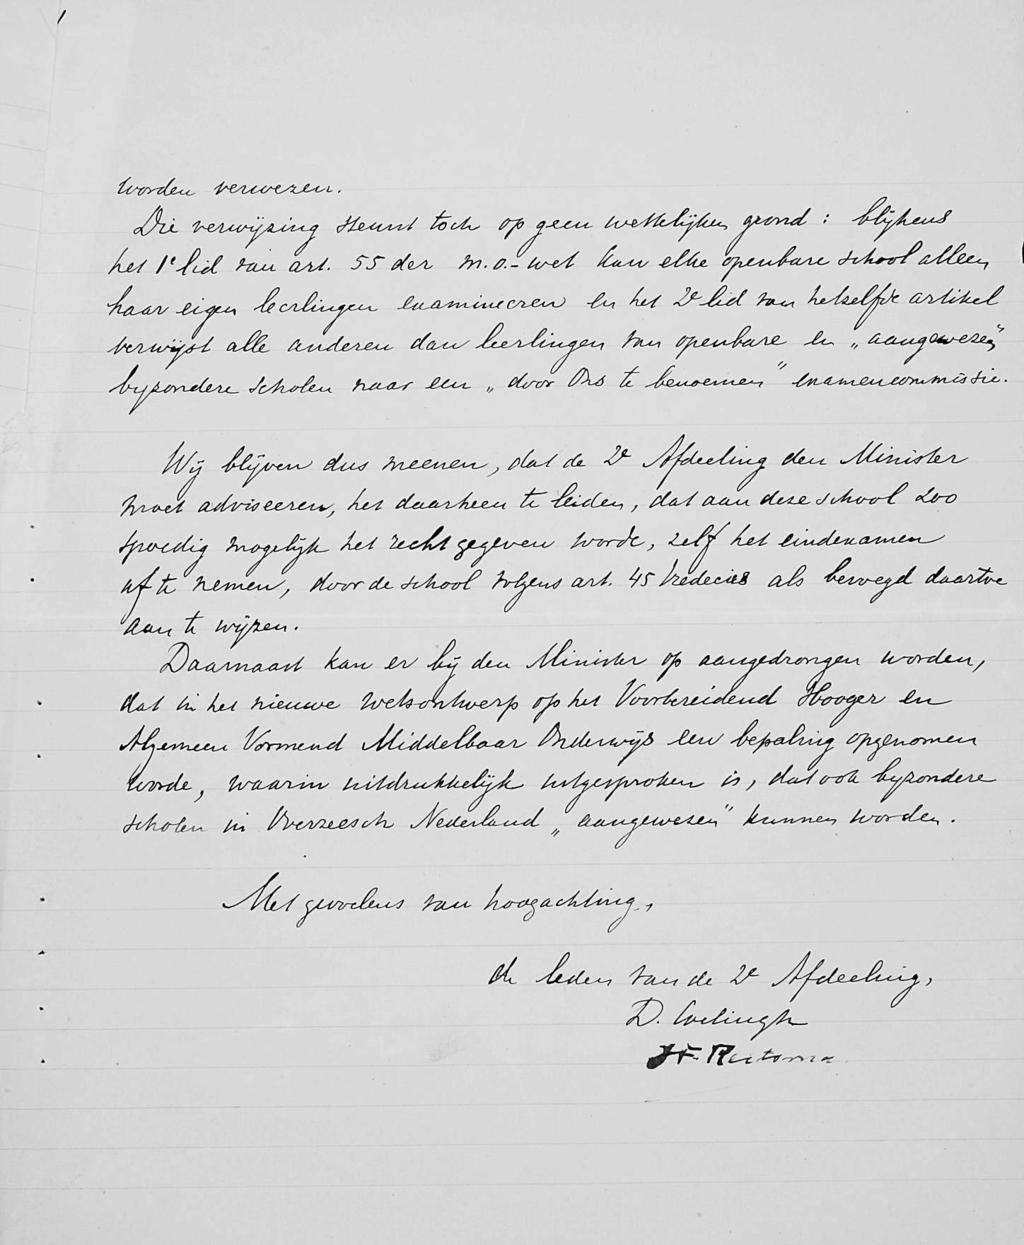 worden verwezen.
Die verwijzing steunt toch op geen wettelijken grond: blijkens
het 1e lid van art. 55 der m.o.-wet kan elke openbare school alleen
haar eigen leerlingen examineeren en het 2e lid van hetzelfde artikel
verwijst alle anderen dan leerlingen van openbare en „aangewezen”
byzondere scholen naar een „door Ons te benoemen” examencommissie.
Wij blijven dus meenen, dat de 2e Afdeeling den Minister
moet adviseeren, het daarheen te leiden, dat aan deze school zoo
spoedig mogelijk het recht gegeven worde, zelf het eindexamen
af te nemen, door de school volgens art. 45 tredecies als bevoegd daartoe
aan te wijzen.
Daarnaast kan er bij den Minister op aangedrongen worden,
dat in het nieuwe wetsontwerp op het Voorbereidend Hooger en
Algemeen Vormend Middelbaar Onderwijs een bepaling opgenomen
worde, waarin uitdrukkelijk uitgesproken is, dat ook byzondere
scholen in Overzeesch Nederland „aangewezen” kunnen worden.
Met gevoelens van hoogachting,
de leden van de 2e Afdeeling,
D. Coelingh